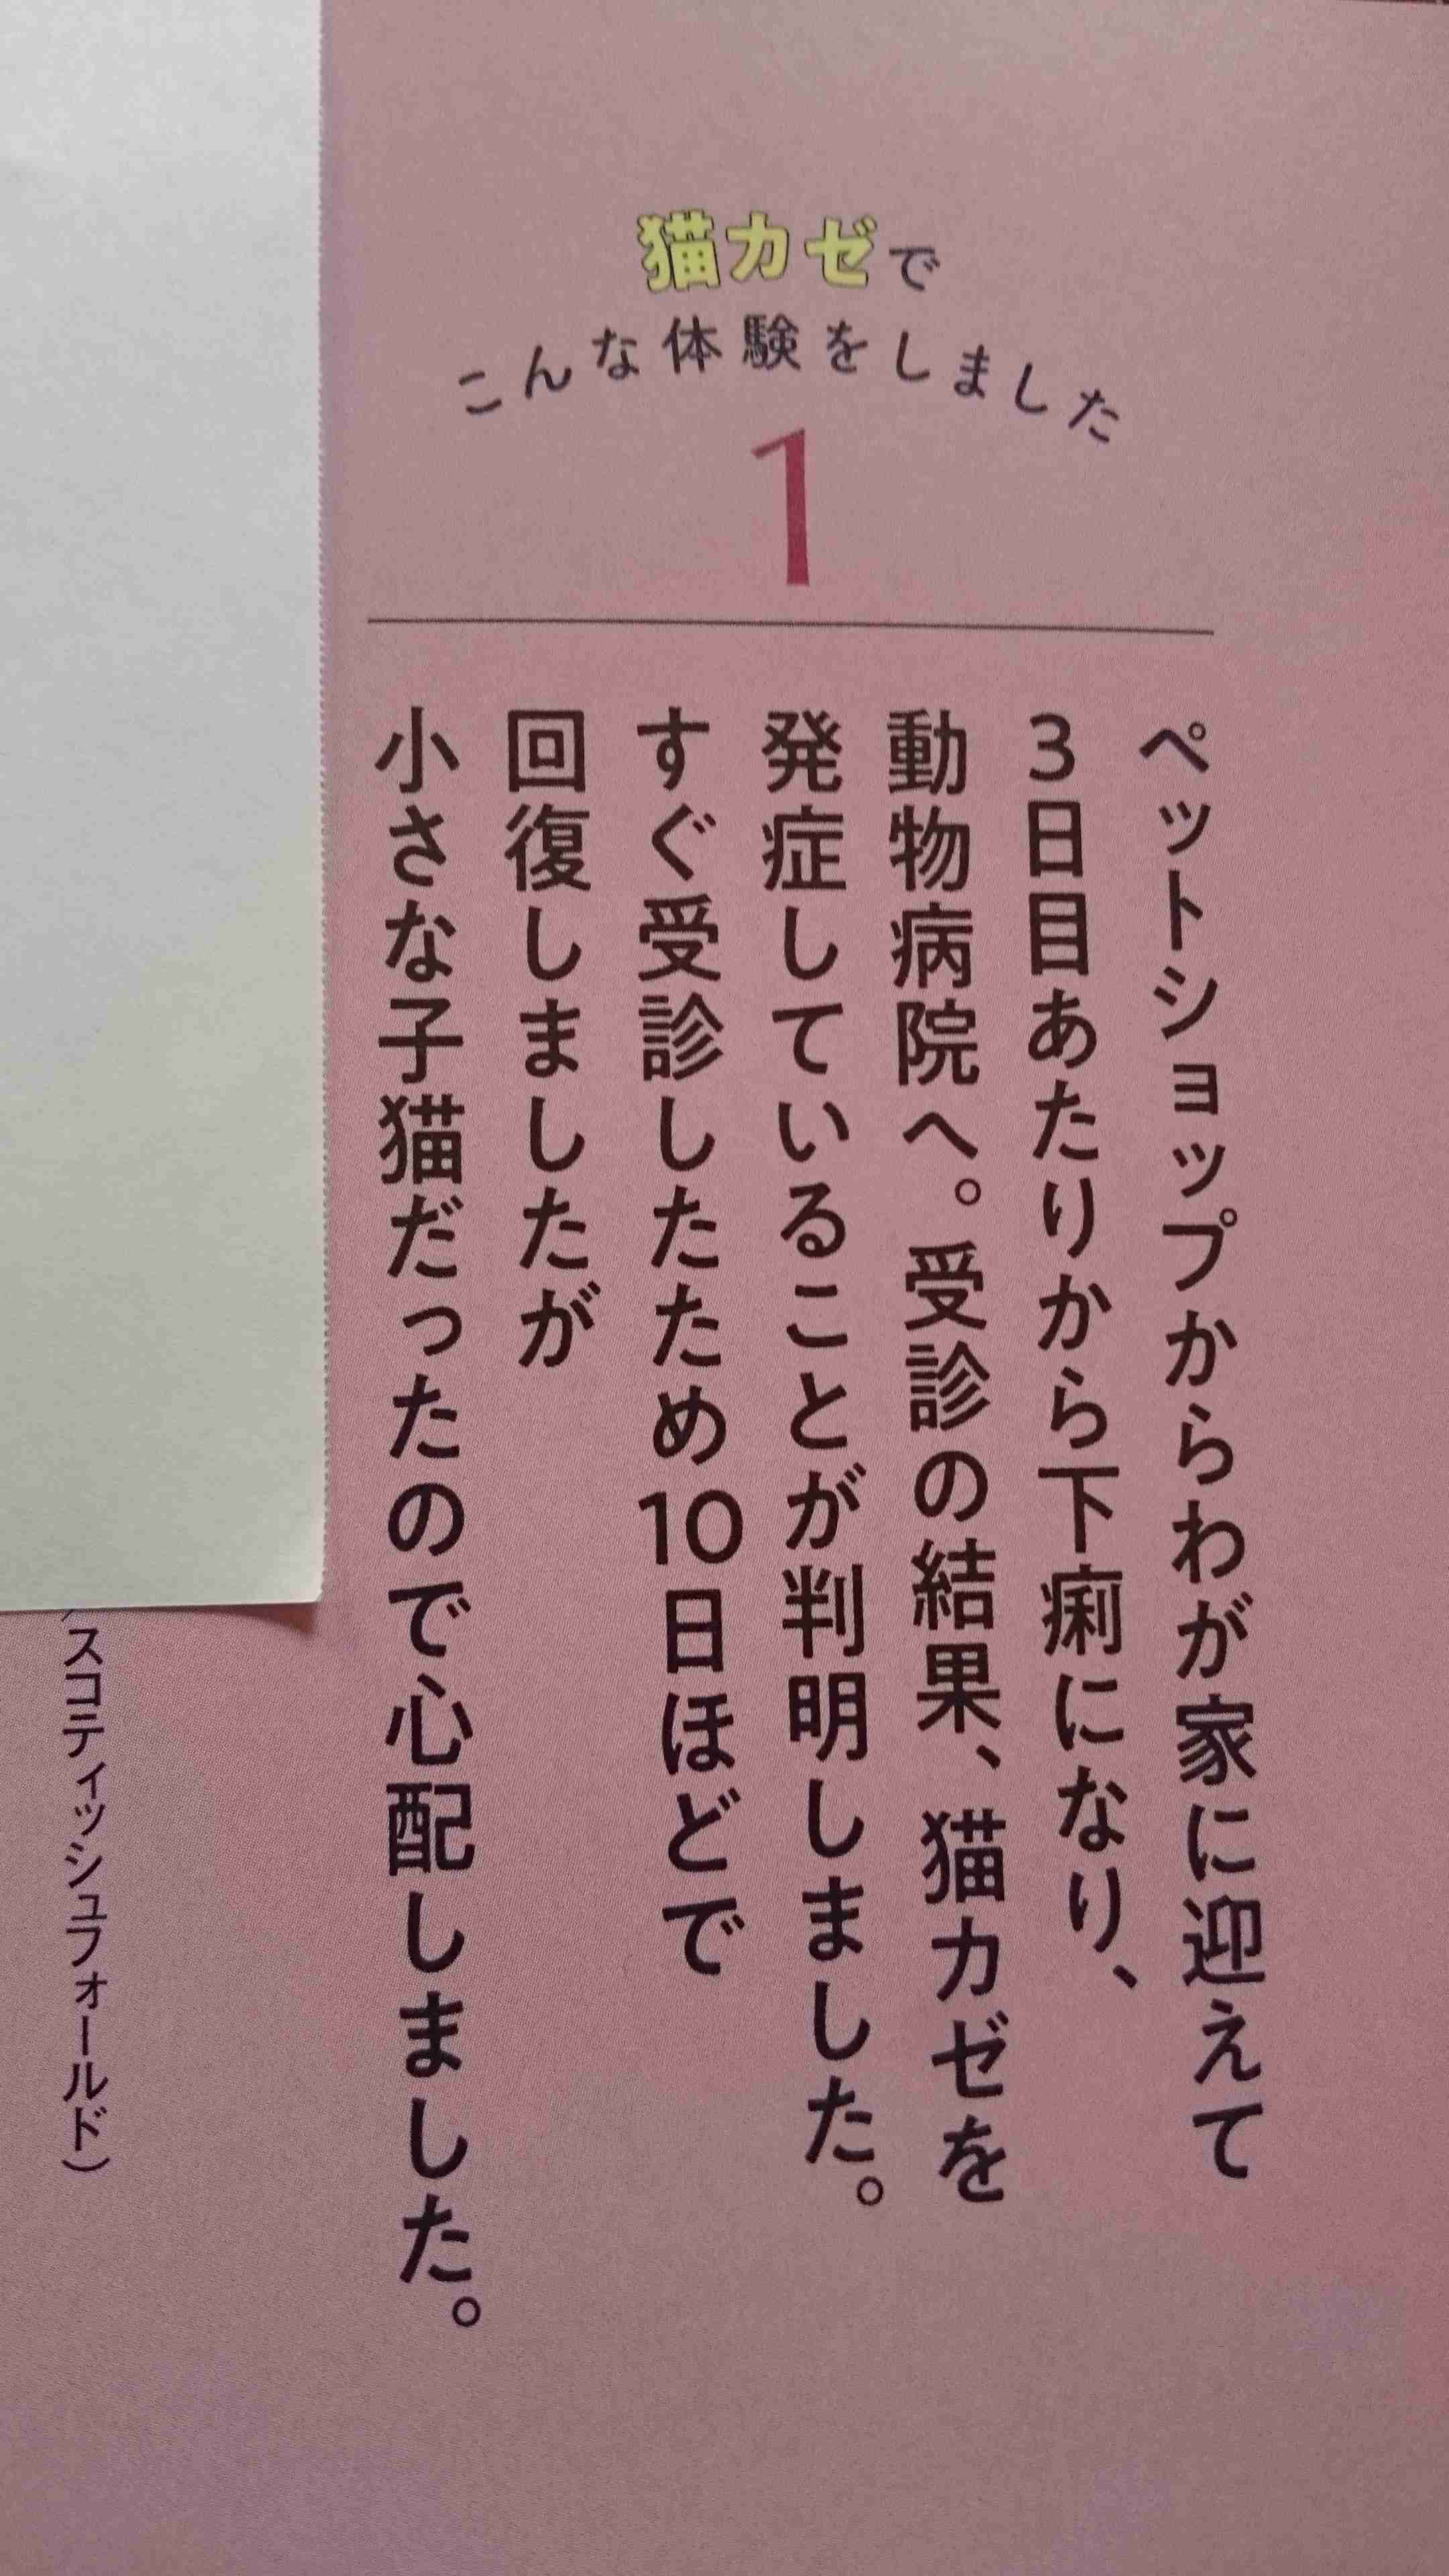 猫カゼで
こんな体験をしました
1
ペットショップからわが家に迎えて
3日目あたりから下痢になり、
動物病院へ。受診の結果、猫カゼを
発症していることが判明しました。
すぐ受診したため10日ほどで
回復しましたが
小さな子猫だったので心配しました。
スコティッシュフォールド)